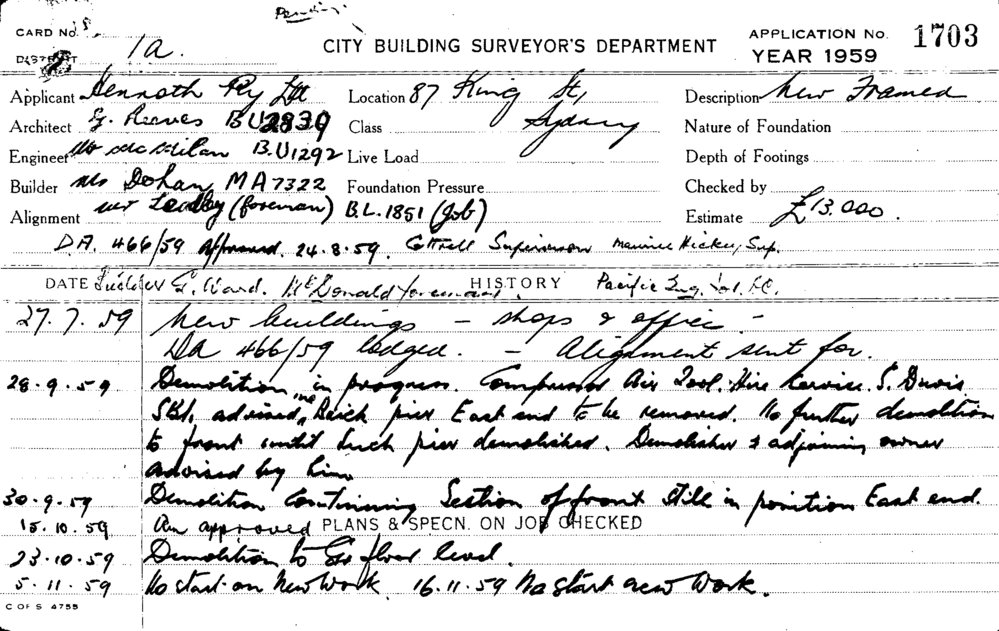 Pending.
CARD No.
1a.
CITY BUILDING SURVEYOR'S DEPARTMENT
APPLICATION No. 1703
YEAR 1959
Applicant Pty Ltd Location 87 King St, Description New Framed
Sydney
Architect G. Reeves BU2839 Class Nature of Foundation
Engineer Mr McMilan B.U1292 Live Load Depth of Footings
Builder Mr Dohan MA7322 Foundation Pressure Checked by
Alignment Mr (foreman) B.L. 1851 (Job) Estimate £13.000.
DA. 466/59 Approved. 24.8.59. Cottrell Supervisor Maurice Hickey, Sup.
DATE Ward. McDonald foreman. HISTORY Pacific Eng.
27.7.59 New buildings – shops & office –
DA 466/59 lodged. – Alignment sent for.
28.9.59 Demolition in progress. Compressed Air Tool Hire Service. S. Davis
advised me Brick pier East end to be removed. No further demolition
to front until such pier demolished. Demolisher & adjoining owner
advised by him
30.9.59 Demolition Continuing Section of front still in position East end.
15.10.59 An approved PLANS & SPECN. ON JOB CHECKED
23.10.59 Demolition to Gr floor level.
5.11.59 No start on New Work. 16.11.59 No start new Work.
C OF S 4755